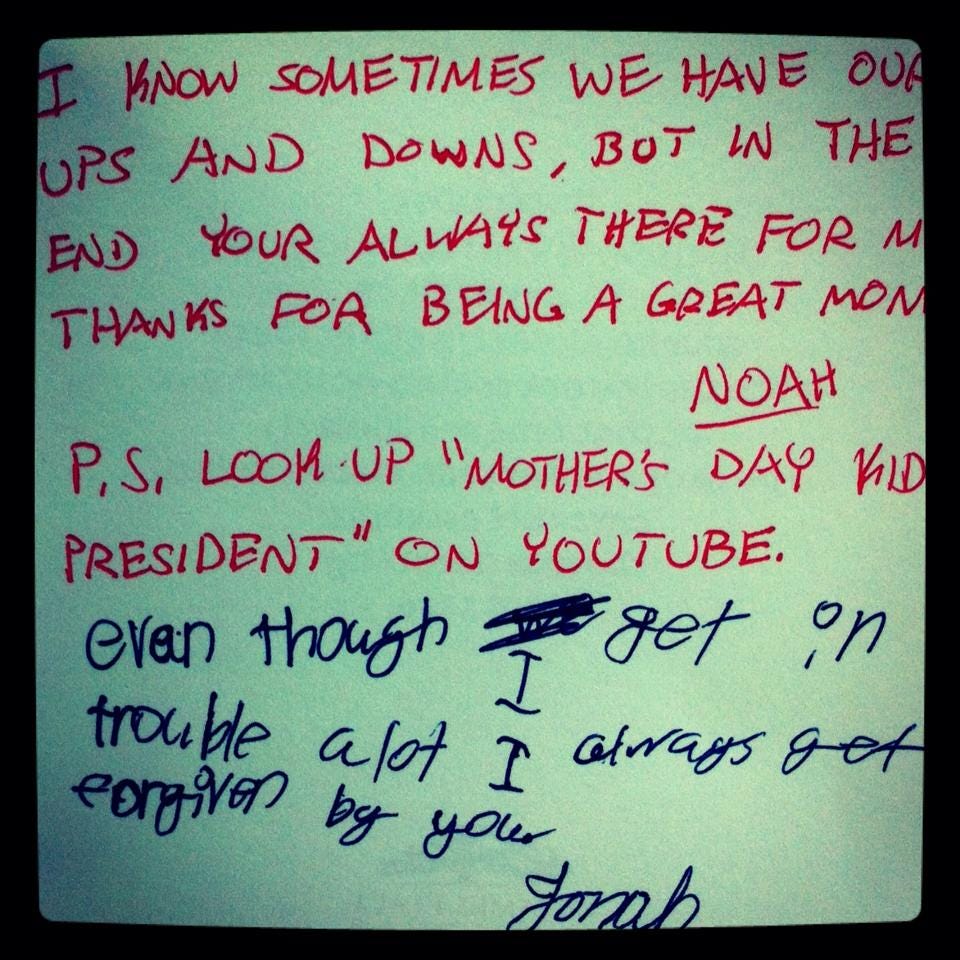 I KNOW SOMETIMES WE HAVE OUR
UPS AND DOWNS, BUT IN THE
END YOUR ALWAYS THERE FOR M
THANKS FOR BEING A GREAT MOM
NOAH
P.S. LOOK UP "MOTHER'S DAY KID
PRESIDENT" ON YOUTUBE.
even though get in
I
trouble alot I always get
forgiven by you
Jonah